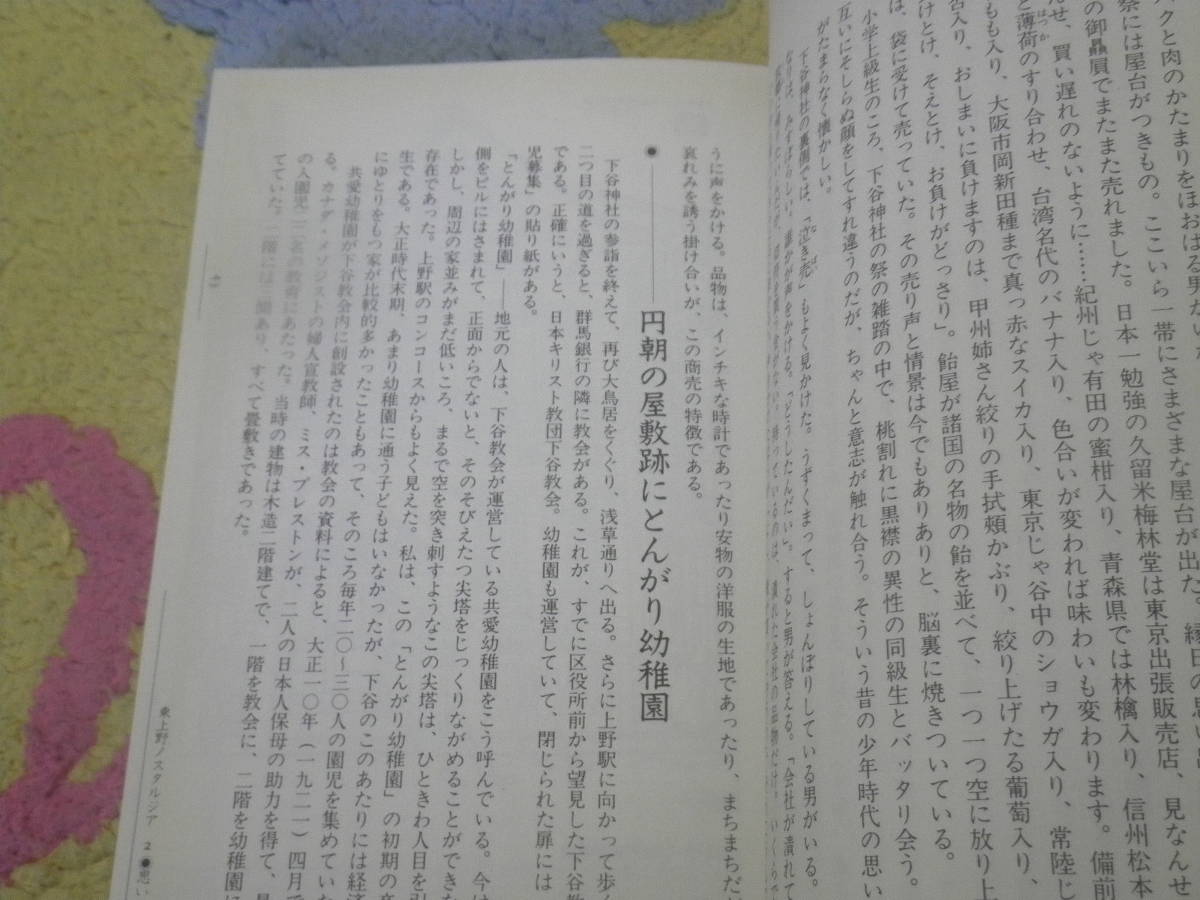 クと肉のかたまりをほおばる男
祭には屋台がつきもの。ここいら一帯にさまざまな屋台が出た。縁日の思い
の御贔屓でまたまた売れました。日本一勉強の久留米梅林堂は東京出張販売店、見なんせ
んせ、買い遅れのないように……紀州じゃ有田の蜜柑入り、青森県では林檎入り、信州松本
と薄荷のすり合わせ、台湾名代のバナナ入り、色合いが変われば味わいも変わります。備前
もも入り、大阪市岡新田種まで真っ赤なスイカ入り、東京じゃ谷中のショウガ入り、常陸じ
古入り、おしまいに負けますのは、甲州姉さん絞りの手拭頰かぶり、絞り上げたる葡萄入り、
けとけ、そえとけ、お負けがどっさり」。飴屋が諸国の名物の飴を並べて、一つ一つ空に放り上
は、袋に受けて売っていた。その売り声と情景は今でもありありと、脳裏に焼きついている。
小学上級生のころ、下谷神社の祭の雑踏の中で、桃割れに黒襟の異性の同級生とバッタリ会う。
互いにそしらぬ顔をしてすれ違うのだが、ちゃんと意志が触れ合う。そういう昔の少年時代の思い
がたまらなく懐かしい。
下谷神社の裏側では、「泣き売」もよく見かけた。うずくまって、しょんぼりしている男がいる。
なりは、みすぼらしい。誰かが声をかける。「どうしたんだい」。すると男が答える。「会社が潰れて
うに声をかける。品物は、インチキな時計であったり安物の洋服の生地であったり、まちまちだ
哀れみを誘う掛け合いが、この商売の特徴である。
●――円朝の屋敷跡にとんがり幼稚園
下谷神社の参詣を終えて、再び大鳥居をくぐり、浅草通りへ出る。さらに上野駅に向かって歩
二つ目の道を過ぎると、群馬銀行の隣に教会がある。これが、すでに区役所前から望見した下谷教
である。正確にいうと、日本キリスト教団下谷教会。幼稚園も運営していて、閉じられた扉には
児募集」の貼り紙がある。
「とんがり幼稚園」――地元の人は、下谷教会が運営している共愛幼稚園をこう呼んでいる。今は
側をビルにはさまれて、正面からでないと、そのそびえたつ尖塔をじっくりながめることができな
しかし、周辺の家並みがまだ低いころ、まるで空を突き刺すようなこの尖塔は、ひときわ人目を引
存在であった。上野駅のコンコースからもよく見えた。私は、この「とんがり幼稚園」の初期の卒
生である。大正時代末期、あまり幼稚園に通う子どもはいなかったが、下谷のこのあたりには経済
にゆとりをもつ家が比較的多かったこともあって、そのころ毎年二〇～三〇人の園児を集めていた
共愛幼稚園が下谷教会内に創設されたのは教会の資料によると、大正一〇年（一九二一）四月で
る。カナダ・メソジストの婦人宣教師、ミス・プレストンが、二人の日本人保母の助力を得て、
の入園児二二名の教育にあたった。当時の建物は木造二階建てで、一階を教会に、二階を幼稚園に
ていた。二階には二間あり、すべて畳敷きであった。
東上野ノスタルジア 2●思い